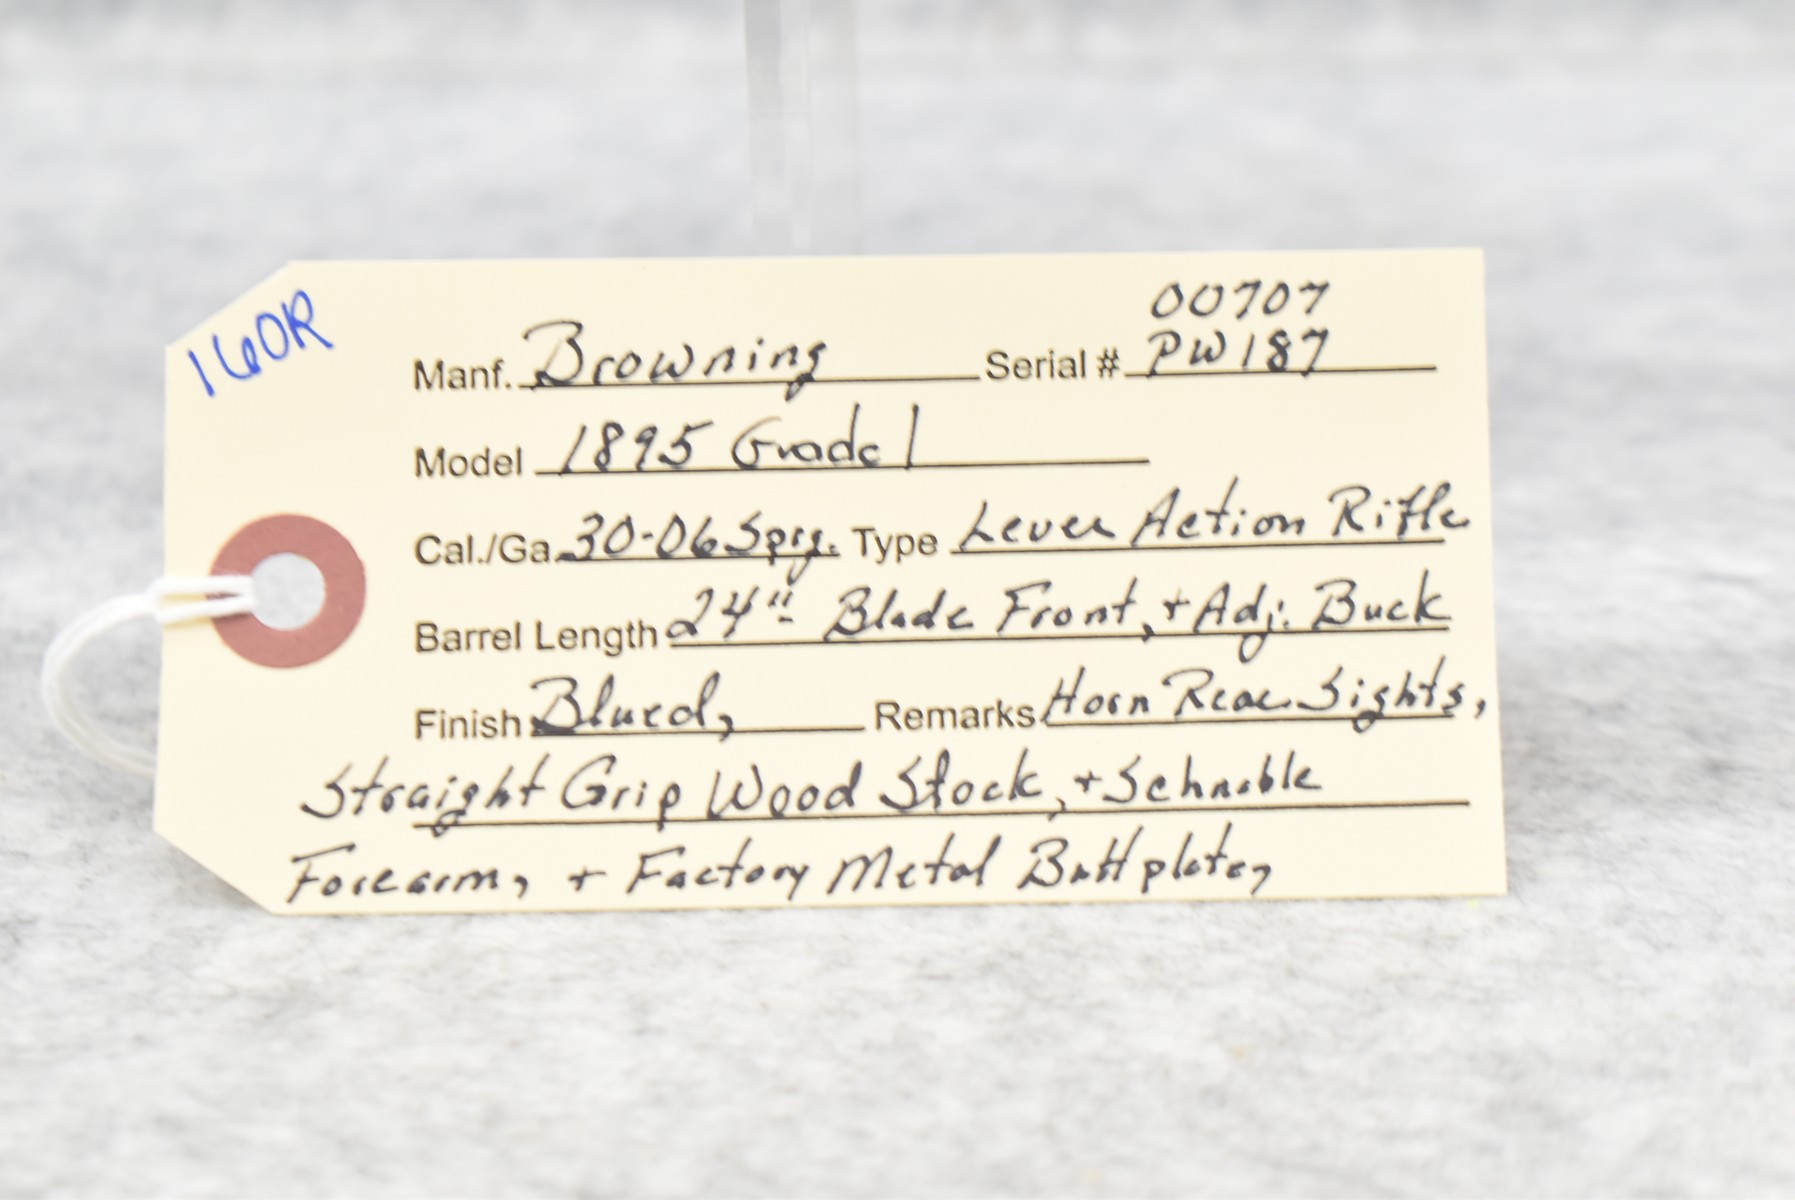 160R
00707
Manf. Browning Serial # PW187
Model 1895 Grade 1
Cal./Ga. 30-06 Sprg. Type Lever Action Rifle
Barrel Length 24" - Blade Front, + Adj. Buck
Finish Blued, Remarks Horn Rear Sights,
Straight Grip Wood Stock, + Schnable
Forearm, + Factory Metal Buttplate,